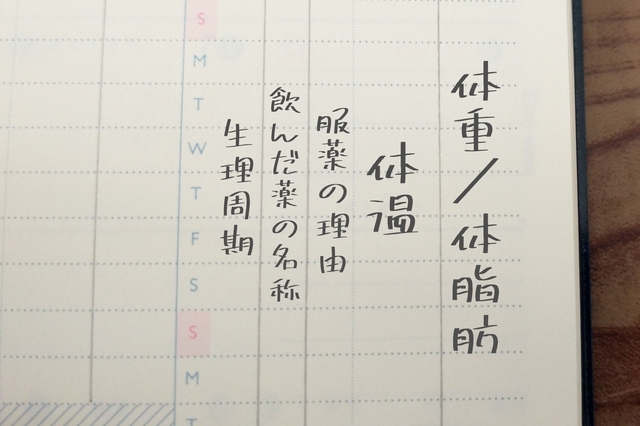 体重/体脂肪
体温
服薬の理由
飲んだ薬の名称
生理周期
S
M
T
W
T
F
S
S
M
T